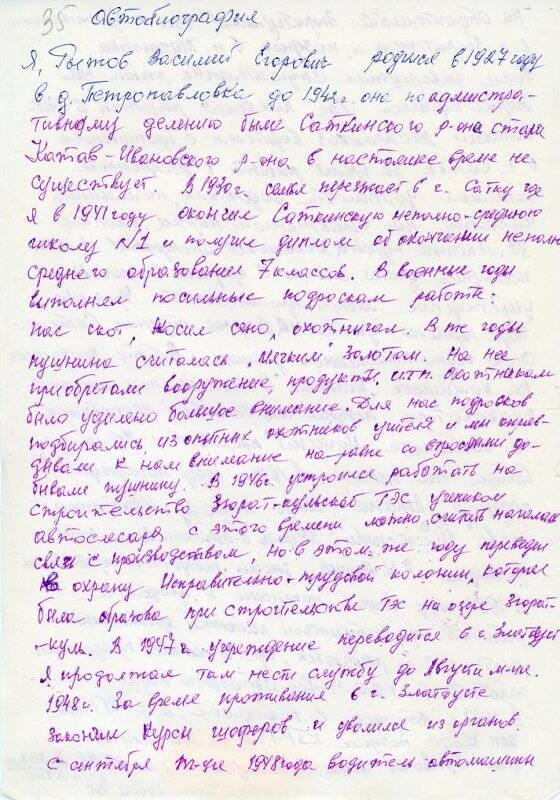 35 Автобиография
Я, Рытов Василий Егорович родился в 1927 году
в д. Петропавловка до 1942г. она по администра-
тивному делению была Саткинского р-она стала
Катав-Ивановского р-она, в настоящее время не
существует. В 1930г. семья переезжает в г. Сатку где
я в 1941 году окончил Саткинскую неполно-среднюю
школу №1 и получил диплом об окончании неполно
среднего образования 7 классов. В военные годы
выполнял посильные подросткам работы:
пас скот, косил сено, охотничал. В те годы
пушнина считалась "мягким" золотом. На нее
приобретали вооружение, продукты и.т.п. охотникам
было уделено большое внимание. Для нас подростков
подбирались из опытных охотников учителя и мы оправ-
дывали к нам внимание на равне со взрослыми до-
бывали пушнину. В 1946г. устроился работать на
строительство Зюрат-кульской ГЭС учеником
автослесаря с этого времени можно считать началом
связи с производством, но в этом же году переведен
в охрану Исправительно-трудовой колонии, которая
была образована при строительстве ГЭС на озере Зюрат-
-куль. В 1947г учреждение переводится в г. Златоуст
Я продолжая там нести службу до Августа м-ца
1948г. За время проживания в г. Златоусте
закончил курсы шоферов и уволился из органов.
С сентября м-ца 1948 года водитель автомашины